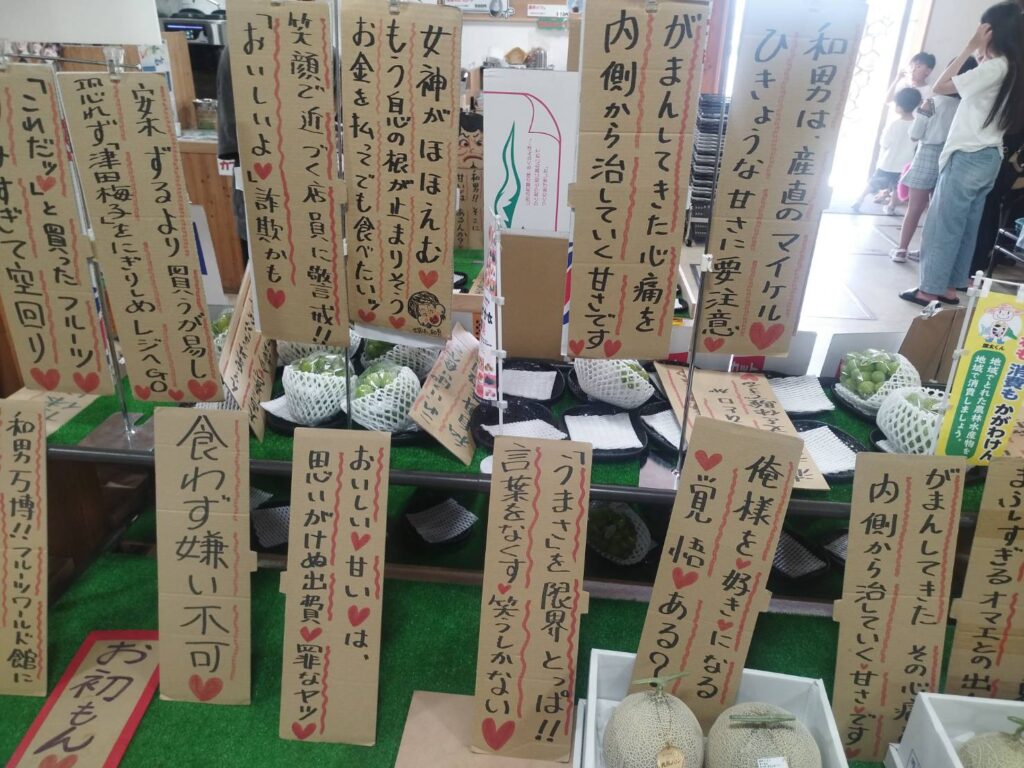 和男は、産直のマイケル
ひきょうな甘さに要注意
がまんしてきた心痛を
内側から治していく甘さです
女神がほほえむ
もう息の根が止まりそう
お金を払ってでも食べたいッ
笑顔で近づく店員に警戒!!
「おいしいよ」詐欺かも
案ずるより買うが易し
恐れず「津田梅子」をにぎりしめレジへGO
「これだッ」と買ったフルーツ
すぎて空回り
消費も かがわけん
地域でとれた農林水産物を
地域で消費しましょう。
まぶしすぎるオマエとの出
がまんしてきた その心痛
内側から治していく甘さです
俺様を好きになる
覚悟ある?
「うまさ」を限界とっぱ!!
言葉をなくす 笑うしかない
おいしい甘いは、
思いがけぬ出費 罪なヤツ
食わず嫌い不可
お初もん
和男万博!!フルーツワールド館に